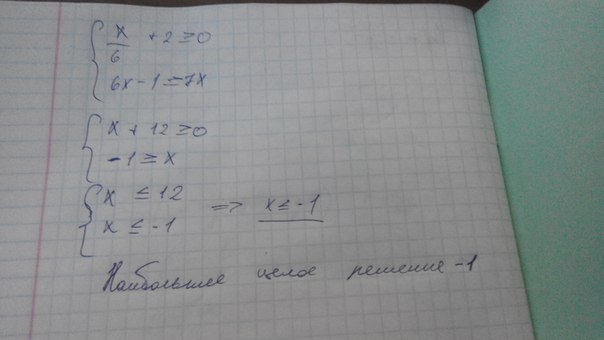 x/6 + 2 ≥ 0
6x - 1 ≤ 7x
x + 12 ≥ 0
-1 ≥ x
x ≤ 12
x ≤ -1 => x ≤ -1
Наибольшее целое решение -1